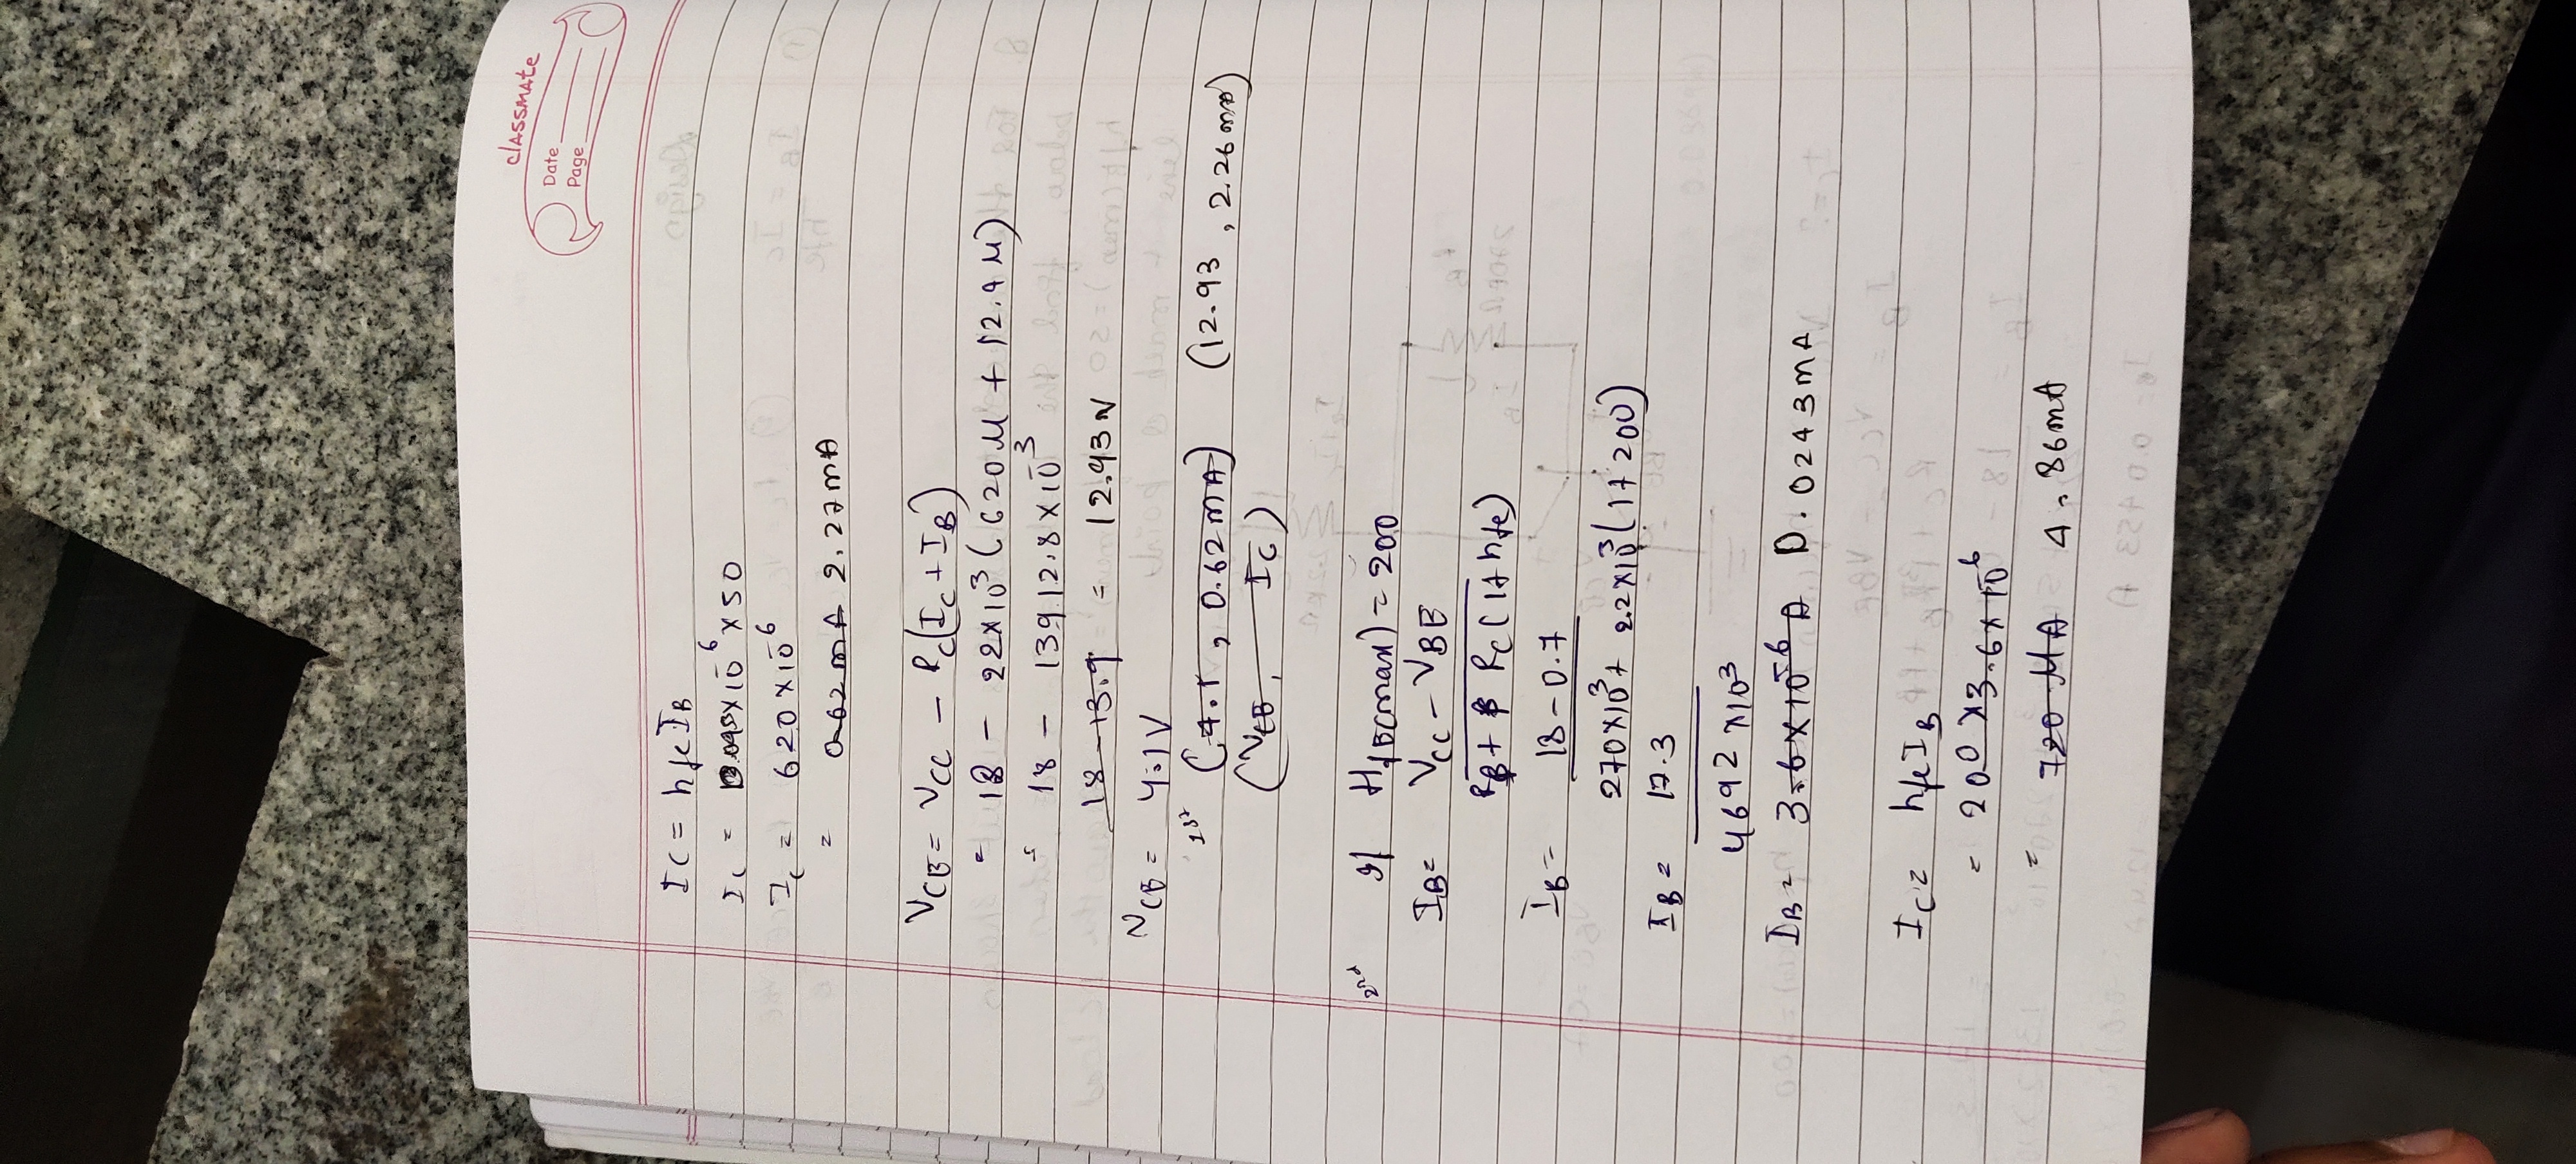 classmate
Date
Page
IC = hfe IB
IC = 0.045x10^-6 x 50
IC = 620 x 10^-6
= 0.62 mA 2.27mA
VCE = VCC - RC(IC + IB)
= 18 - 22x10^3 (620 M + 12.4 M)
= 18 - 13912.8 x 10^-3
18 - 13.9 = 12.93 V
VCE = 4.1V
1st (4.1, 0.62 mA) (12.93, 2.26 mA)
(VCE, IC)
2nd If HfE(max) = 200
IB = VCC - VBE
RB + RC (1+hfe)
IB = 18 - 0.7
270x10^3 + 2.2x10^3 (1+200)
IB = 17.3
4692 x10^3
IB = 3.6x10^-6 A 0.0243mA
IC = hfe IB
= 200 x 3.6 x 10^-6
= 720 MA 4.86mA